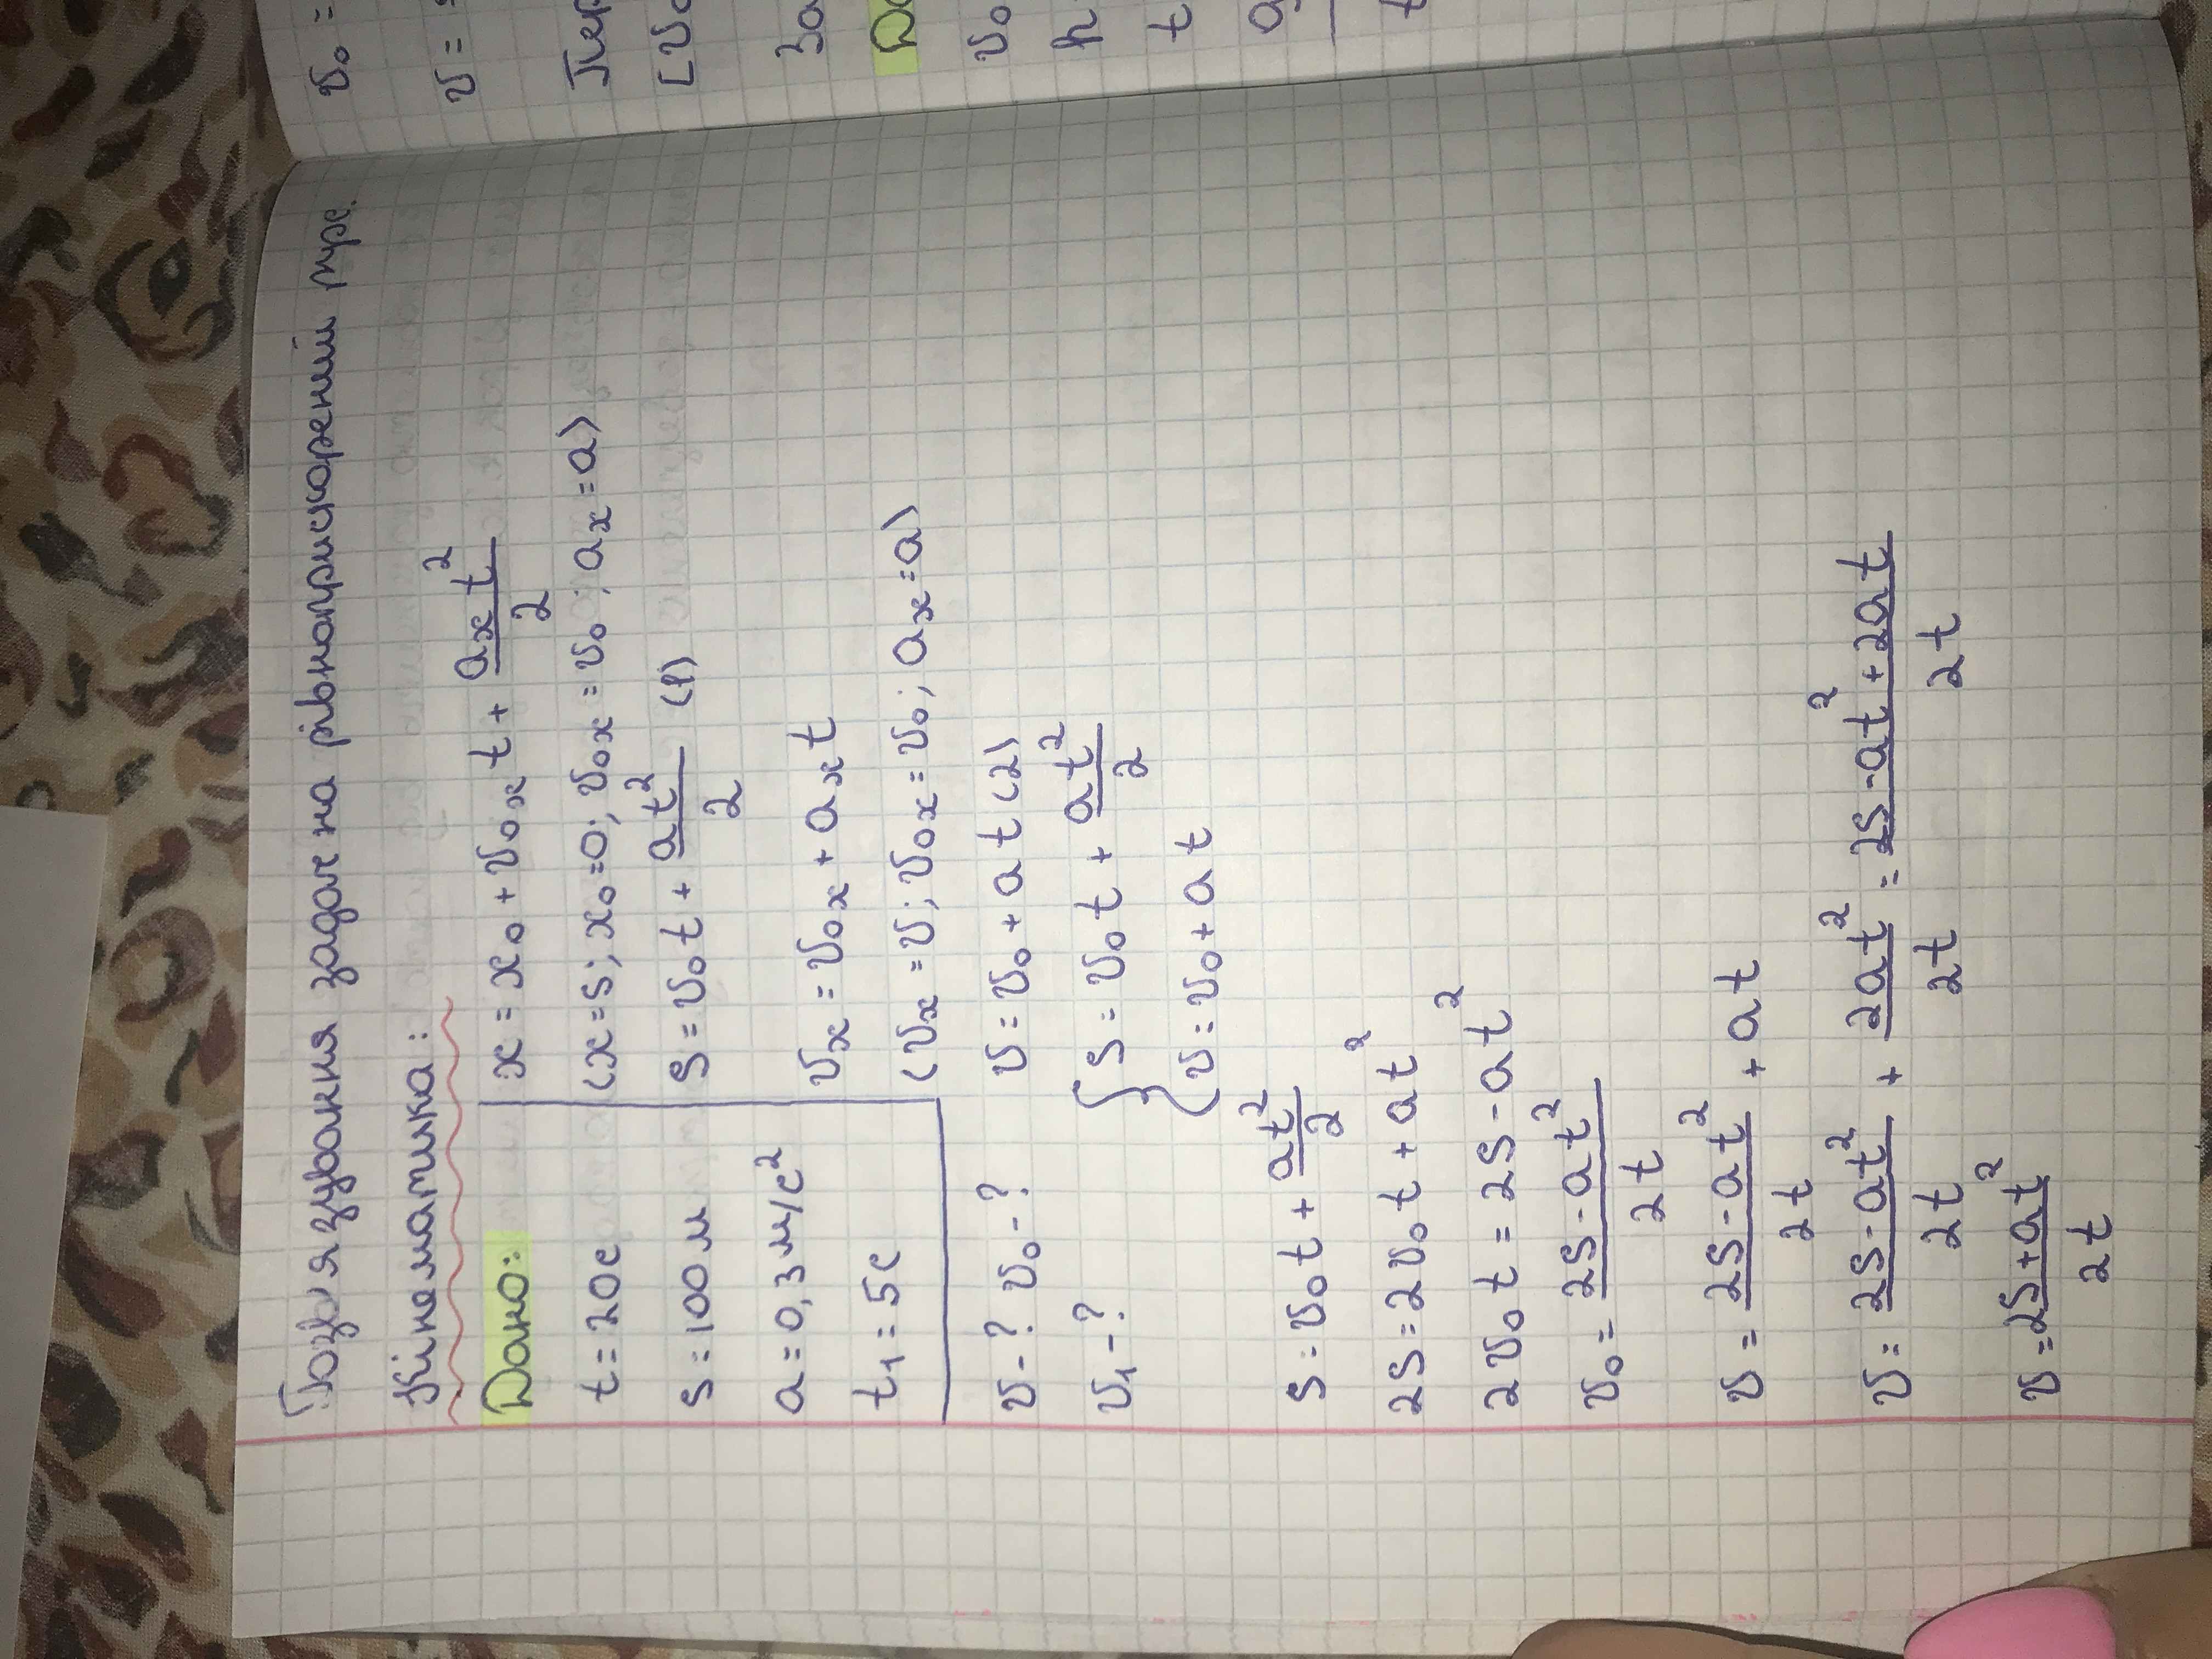 задач на рівноприскорений
Кінематика:
Дано:
t = 20с
s = 100м
a = 0,3 м/с²
t₁ = 5с
v - ? v₀ - ?
v₁ - ?
x = x₀ + v₀ₓt + aₓt²/2
(x = s; x₀ = 0; v₀ₓ = v₀; aₓ = a)
s = v₀t + at²/2 (1)
vₓ = v₀ₓ + aₓt
(vₓ = v; v₀ₓ = v₀; aₓ = a)
v = v₀ + at (2)
{ s = v₀t + at²/2
v = v₀ + at
s = v₀t + at²/2
2s = 2v₀t + at²
2v₀t = 2s - at²
v₀ = 2s - at²/2t
v = 2s - at²/2t + at
v = 2s - at²/2t + 2at²/2t = 2s - at² + 2at/2t
v = 2s + at²/2t
v₀ =
v =
[v₀
За
v₀
h
t
t